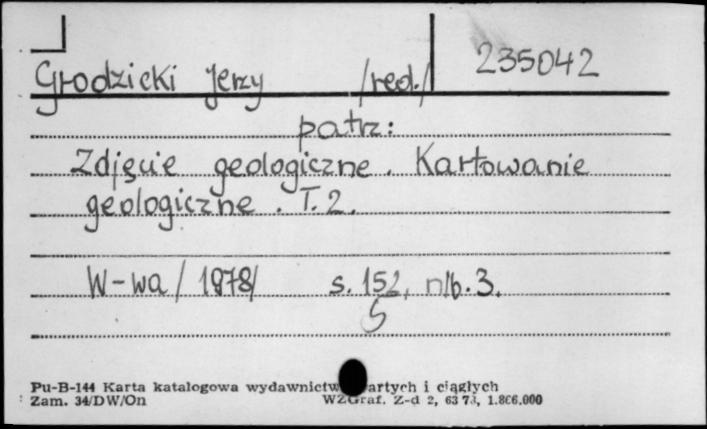 Grodzicki Jerzy /red./ 235042
patrz:
Zdjęcie geologiczne. Kartowanie
geologiczne. T. 2.
W-wa /1978/ s. 152, nlb. 3.
S
Pu-B-144 Karta katalogowa wydawnictw artych i ciągłych
Zam. 34/DW/On WZGraf. Z-d 2, 63 73, 1.866.000